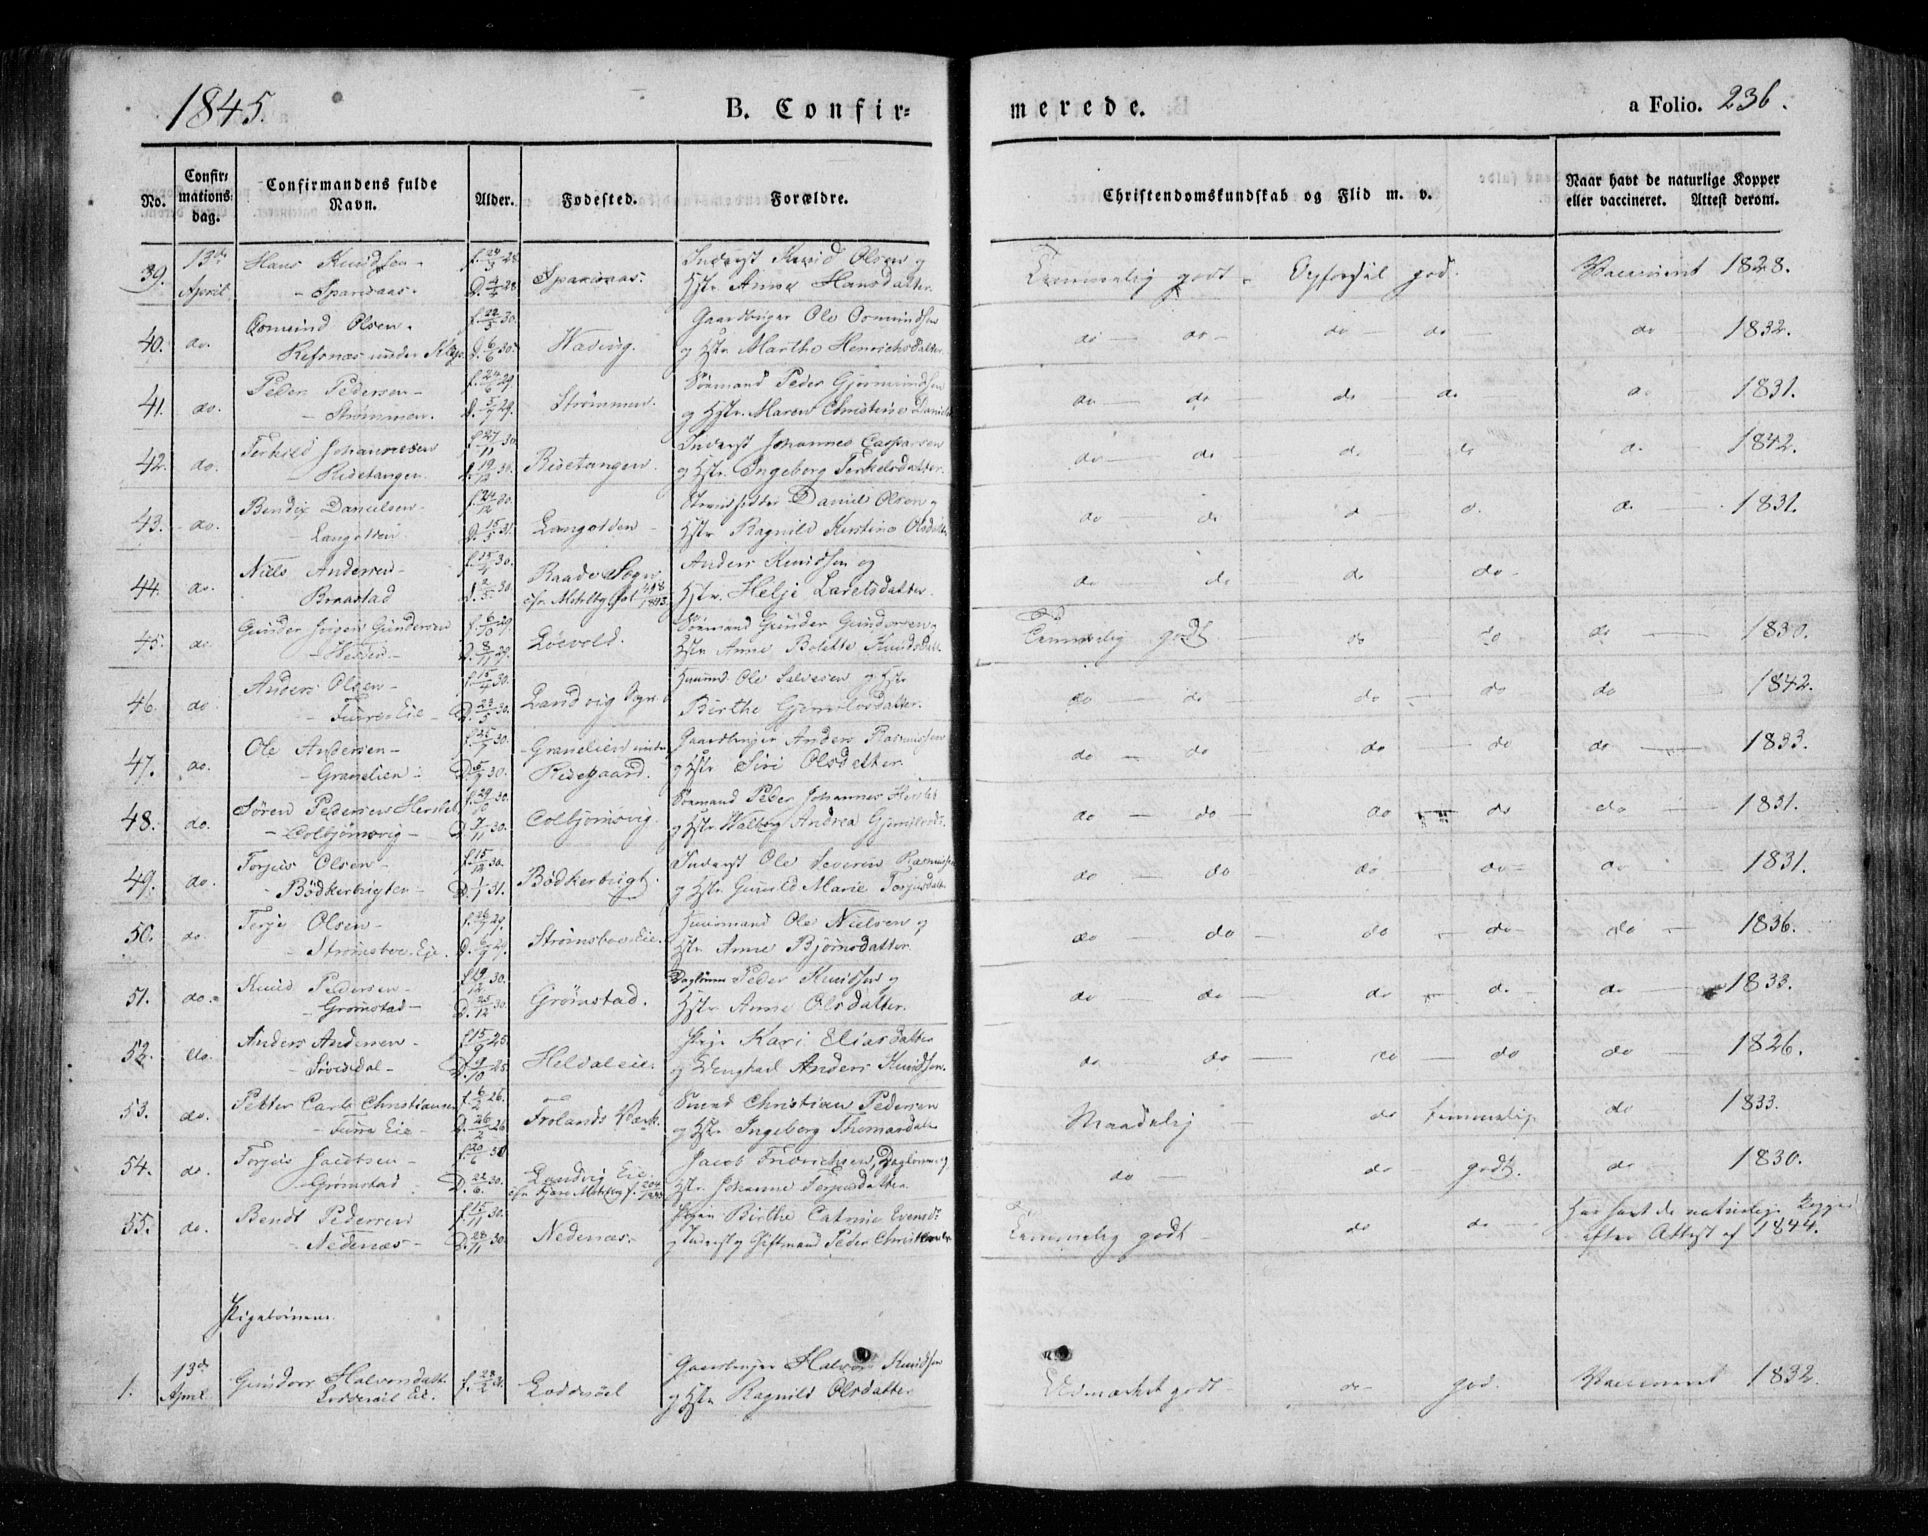 1845.
B. Confir=
merede.
a Folio. 236.
No. Confir= mations= dag. Confirmandens fulde Navn. Alder. Fødested. Forældre. Christendomskundskab og Flid m. v. Naar havt de naturlige Kopper eller vaccineret. Attest derom.
39. 13de April Hans Knudsen - Sparsaas. f. 24/3 28. D. 4/4 28 Sparsaas. Inderst Knud Olsen og Hstr Anne Hansdatter Temmelig godt. Opførsel god. Vaccineret 1828.
40. do. Osmund Olsen - Refsnæs under f. 22/5 30. D. 6/6 30. Gaardbruger Ole Osmundsen og Hstr Marthe Henrichsdatter. do do do do do 1832.
41. do. Peder Pedersen - Strømmen. f. 24/6 29. D. 5/7 29. Strømmen. Sømand Peder Gjermundsen og Hstr. Maren Christine do do do do do 1831.
42. do. Terkild Johannesen - Risetangen. f. 27/11 30. D. 19/12 30. Risetangen. Inderst Johannes Caspersen og Hstr. Ingeborg Terkelsdatter. do do do do do 1842.
43. do. Bendix Danielsen - f. 24/12 30 D. 15/5 31. Daniel Olsen og Hstr Ragnild Kirstine Olsdatter do do do do do 1831.
44. do. Niels Andersen - Braastad f. 15/4 30. D. 2/5 30. Raade Sogn Anders Knudsen og Hstr. Helje do do do do
45. do. Gunder Gundersen - f. 6/10 29. D. 8/11 29. Løevold. Sømand Gunder Gundersen og Hstr Anne Bolette Knudsdatt Temmelig godt do do do 1830.
46. do. Anders Olsen - f. 15/4 30. D. 23/5 30. Landvig Sogn Huusmd Ole Salvesen og Hstr Birthe do do do do do 1842.
47. do. Ole Andersen - Granelien f. 25/7 30. D. 5/9 30. Granelien under Risegaard. Gaardbruger Anders Rasmussen og Hstr Siri Olsdatter. do do do do do 1833.
48. do. Søren Pedersen Herslet - Colbjørnsvig - f. 29/10 30. D. 7/11 30. Colbjørnsvig. Sømand Peder Johannes Herslet og Hstr Walborg Andrea do do do do do 1831.
49. do. Torjus Olsen - Bødkerbugten - f. 15/12 30. D. 1/1 31. Bødkerbugt. Inderst Ole Severin Rasmussen og Hstr Gunild Marie Torjusdatte do do do do do 1831.
50. do. Terje Olsen - Strømsboe Eie. f. 26/7 29. D. 6/9 29. Strømsboe Eie. Huusmand Ole Nielsen og Hstr Anne Bjørnsdatter do do do do do 1836.
51. do. Knud Pedersen - Grømstad - f. 19/12 30. D. 25/12 30 Grømstad. Daglønner Peder Knudsen og Hstr Anne Olsdatter do do do do do 1833.
52. do. Anders Andersen - f. 15/9 25. D. 9/10 25. Heldaleie. Pige Kari Eliasdatter og Ungkarl Anders Knudsen. do do do do do 1826.
53. do. Petter Carl Christiansen - Furre Eie - f. 6/2 26. D. 26/2 26 Frolands Værk. Smed Christian Pedersen og Hstr Ingeborg Thomasdatt. Maadelig do temmelig do 1833.
54. do. Torjus Jacobsen - Grømstad f. 20/6 30 D. 22/6 30. Landvig Eie Jacob Fridrichsen, Daglønner og Hstr Johanne Torjusdatter do do godt. do 1830.
55. do. Bendt Pedersen - Nedenæs - f. 15/11 30. D. 28/11 30. Nedenæs. Pigen Birthe Catrine Evensdt og Inderst og Giftmand Peder Christensen Temmelig godt do do Har havt de naturlige Kopper efter Attest af 1844.
Pigebørnene.
1. 13de April Gundor Halvorsdatt Loddesøel Eie. f. 23/2 31. Loddesøel Gaardbruger Halvor Knudsen og Hstr Ragnild Olsdatter Udmærket godt do god. Vaccineret 1832.